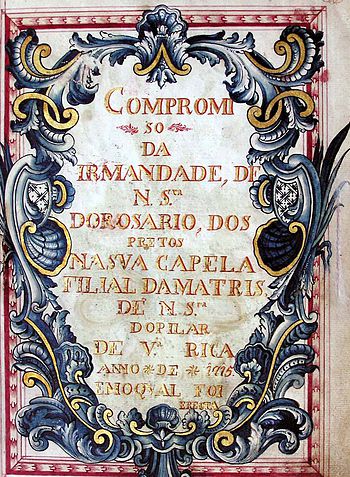 COMPROMI
SO
DA
IRMANDADE, DE
N. S.ra
DOROSARIO, DOS
PRETOS
NASVA CAPELA
FILIAL DAMATRIS
DE N. S.ra
DOPILAR
DE V.a RICA
ANNO DE 1715
EMOQVAL FOI
ERECTA